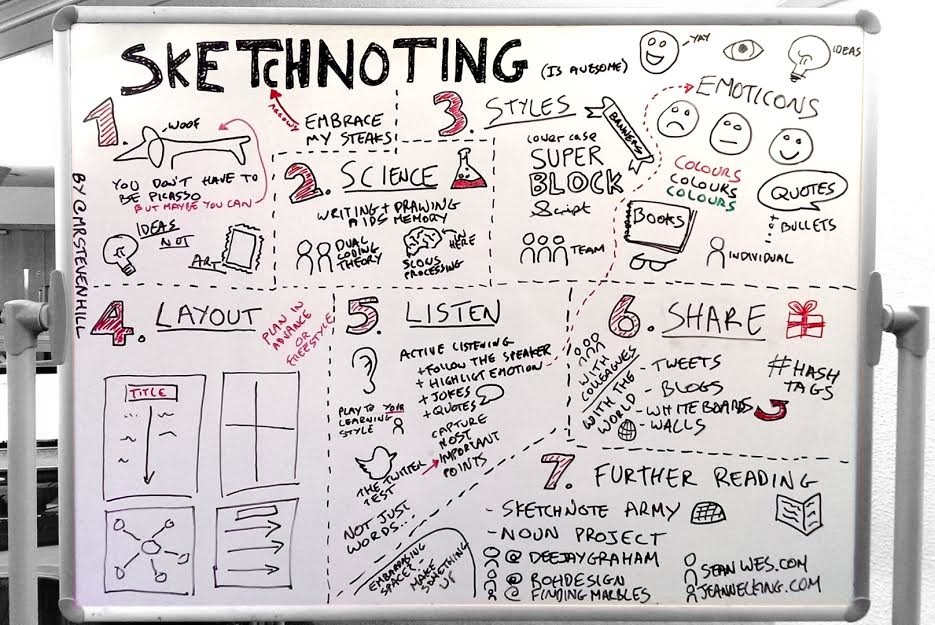 SKETCHNOTING
(IS AWESOME)
YAY
IDEAS
BY @MRSTEVENHILL
1.
WOOF
ARROWS
EMBRACE
MY STEAKS
YOU DON'T HAVE TO
BE PICASSO
BUT MAYBE YOU CAN
IDEAS
NOT
ART
2. SCIENCE
WRITING + DRAWING
AIDS MEMORY
DUAL
CODING
THEORY
IN
HERE
SLOWS
PROCESSING
3. STYLES
BANNERS
lower case
SUPER
BLOCK
Script
TEAM
EMOTICONS
COLOURS
COLOURS
COLOURS
QUOTES
BULLETS
BOOKS
INDIVIDUAL
4. LAYOUT
PLAN IN
ADVANCE
OR
FREESTYLE
TITLE
5. LISTEN
ACTIVE LISTENING
+ FOLLOW THE SPEAKER
+ HIGHLIGT EMOTION
+ JOKES
+ QUOTES
PLAY TO YOUR
LEARNING
STYLE
CAPTURE
MOST
IMPORTANT
POINTS
THE TWITTER
TEST
NOT JUST
WORDS...
EMBARRASING
SPACE? -
MAKE
SOMETHING
UP
6. SHARE
WITH
COLLEAGUES
WITH THE
WORLD
- TWEETS
- BLOGS
- WHITEBOARDS
- WALLS
#HASH
TAGS
7. FURTHER READING
- SKETCHNOTE ARMY
- NOUN PROJECT
@ DEEJAYGRAHAM
@ ROHDESIGN
@ FINDINGMARBLES
SEANWES.COM